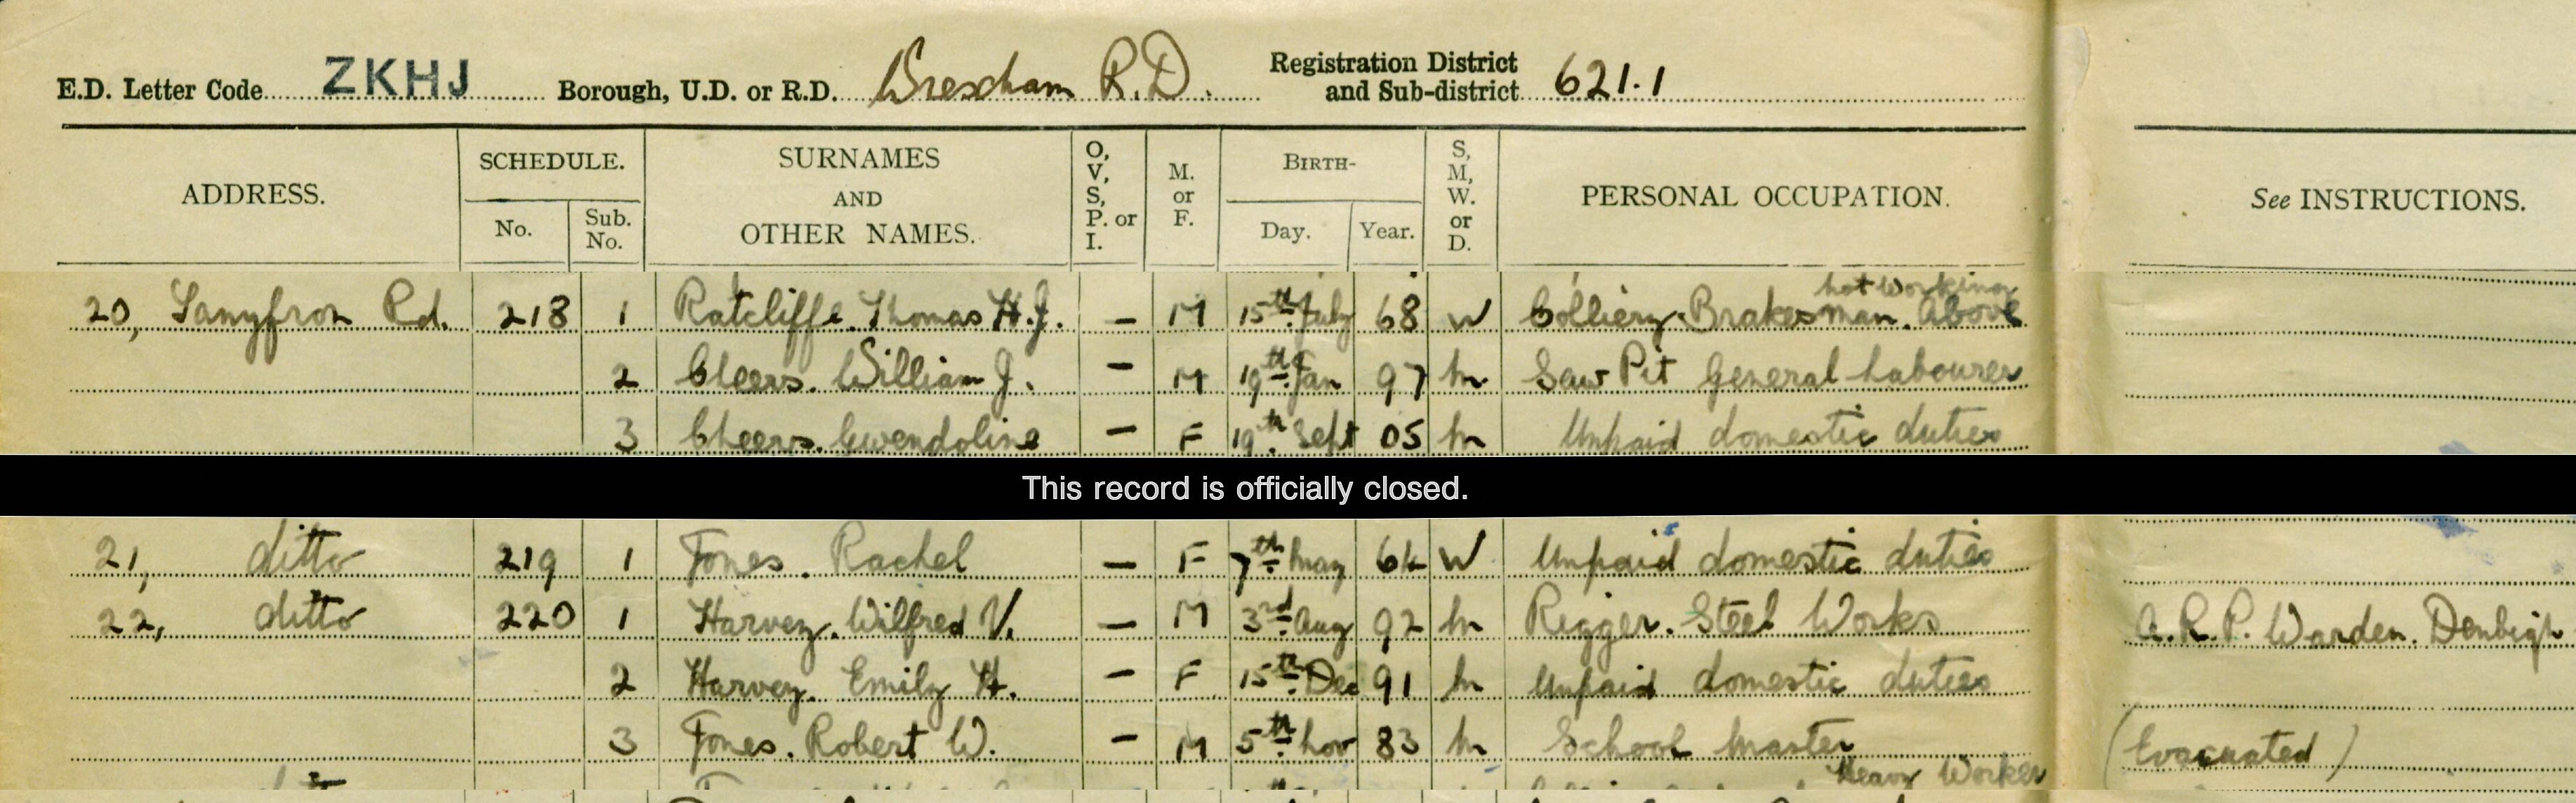 E.D. Letter Code ZKHJ Borough, U.D. or R.D. Wrexham R.D. Registration District and Sub-district 621.1
ADDRESS. SCHEDULE. No. Sub. No. SURNAMES AND OTHER NAMES. O, V, S, P. or I. M. or F. BIRTH- Day. Year. S, M, W. or D. PERSONAL OCCUPATION. See INSTRUCTIONS.
not working
20, Tanyfron Rd. 218 1 Ratcliffe. Thomas H.J. – M 15th July 68 W Colliery. Brakesman. Above
2 Cheers. William J. – M 19th Jan 97 M Saw Pit General Labourer
3 Cheers. Gwendoline – F 19th Sept 05 M Unpaid domestic duties
This record is officially closed.
21, ditto 219 1 Jones. Rachel – F 7th May 64 W Unpaid domestic duties
22, ditto 220 1 Harvey. Wilfred V. – M 3rd Aug 92 M Rigger. Steel Works A.R.P. Warden. Denbigh
2 Harvey. Emily H. – F 15th Dec 91 M Unpaid domestic duties
3 Jones. Robert W. – M 5th Nov 83 M School Master (Evacuated)
Heavy Worker